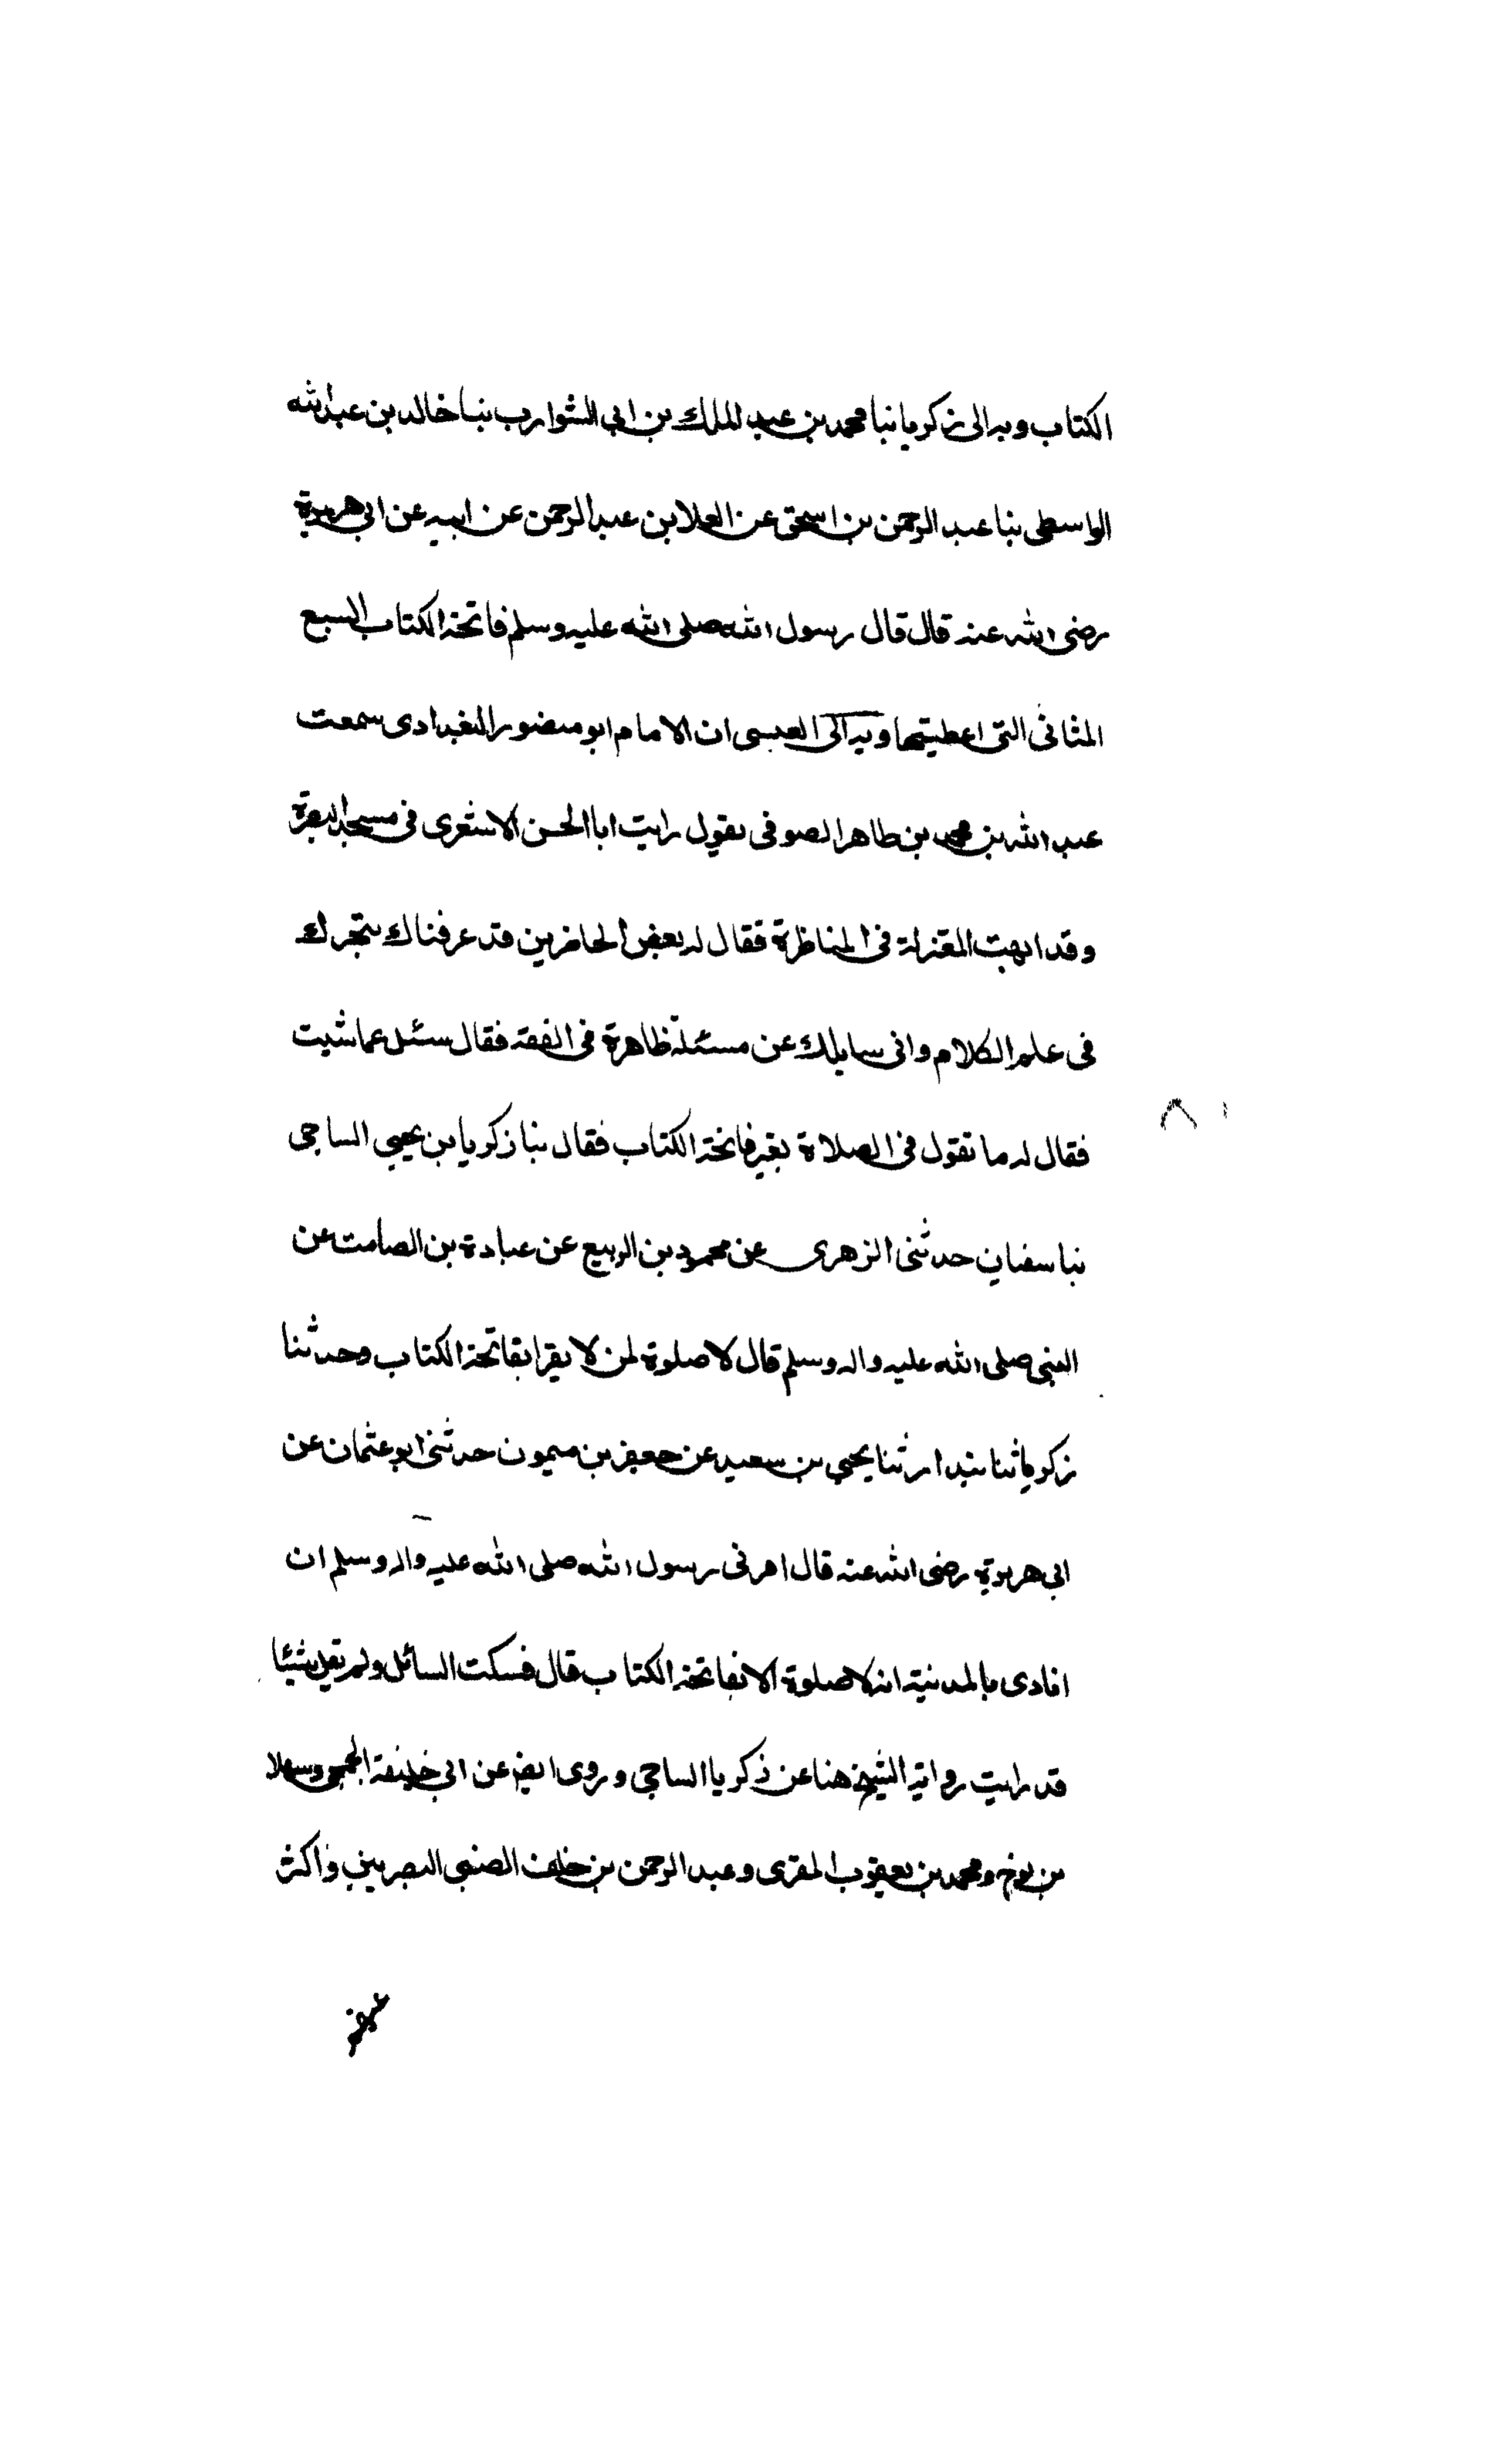 الكتاب وبه الى زكريا نبا محمد بن عبد الملك بن ابي الشوارب نبا خالد بن عبد الله
الواسطى نبا عبد الرحمن بن اسحق عن العلا بن عبد الرحمن عن ابيه عن ابى هريرة
رضى الله عنه قال قال رسول الله صلى الله عليه وسلم فاتحة الكتاب السبع
المثانى التى اعطيتها وبه الى العبسى ان الامام ابو منصور البغدادى سمعت
عبد الله بن محمد بن طاهر الصوفى يقول رايت ابا الحسن الاشعرى فى مسجد البصرة
وقد ابهت المعتزلة فى المناظرة فقال له بعض الحاضرين قد عرفناك بتبحرك
فى علم الكلام وانى سايلك عن مسئلة ظاهرة فى الفقه فقال سئل عما شيت
فقال له ما تقول فى الصلاة بغير فاتحة الكتاب فقال نبا زكريا بن يحيى الساجى
نبا سفيان حدثنى الزهرى عن محمود بن الربيع عن عبادة بن الصامت عن
النبى صلى الله عليه واله وسلم قال لا صلوة لمن لا يقرا بفاتحة الكتاب وحدثنا
زكريا ثنا بندار ثنا يحيى بن سعيد عن جعفر بن ميمون حدثنى ابو عثمان عن
ابى هريرة رضى الله عنه قال امرنى رسول الله صلى الله عليه واله وسلم ان
انادى بالمدينة انه لا صلوة الا بفاتحة الكتاب قال فسكت السائل ولم يقل شيئا
قد رايت رواية الشيخ هنا عن زكريا الساجى وروى ايضا عن ابى خليفة الجمحى وسهلا
بن نوح ومحمد بن يعقوب المقرى وعبد الرحمن بن خلف الضبى البصريين واكثر